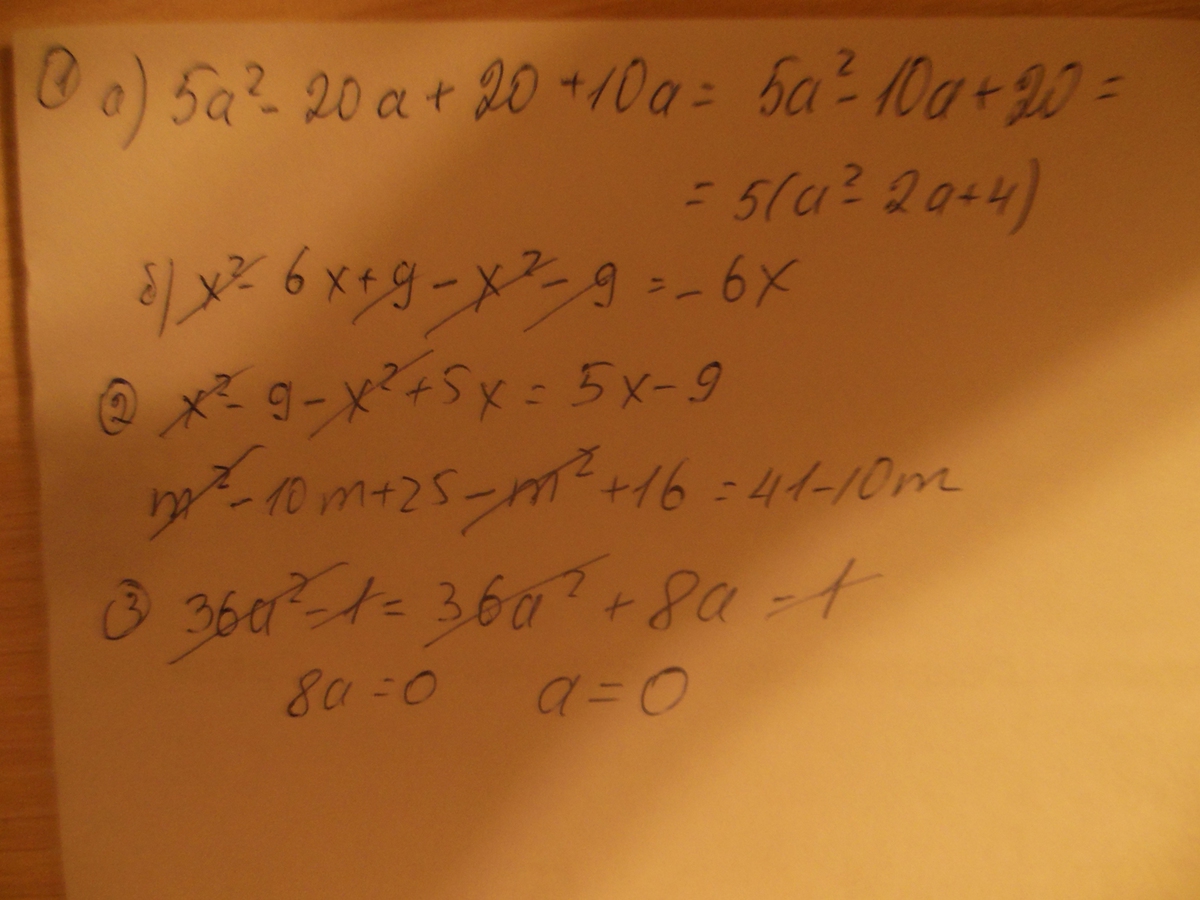 ① а) 5a² - 20a + 20 + 10a = 5a² - 10a + 20 =
= 5(a² - 2a + 4)
б) x² - 6x + 9 - x² - 9 = - 6x
② x² - 9 - x² + 5x = 5x - 9
m² - 10m + 25 - m² + 16 = 41 - 10m
③ 36a² - 1 = 36a² + 8a - 1
8a = 0 a = 0